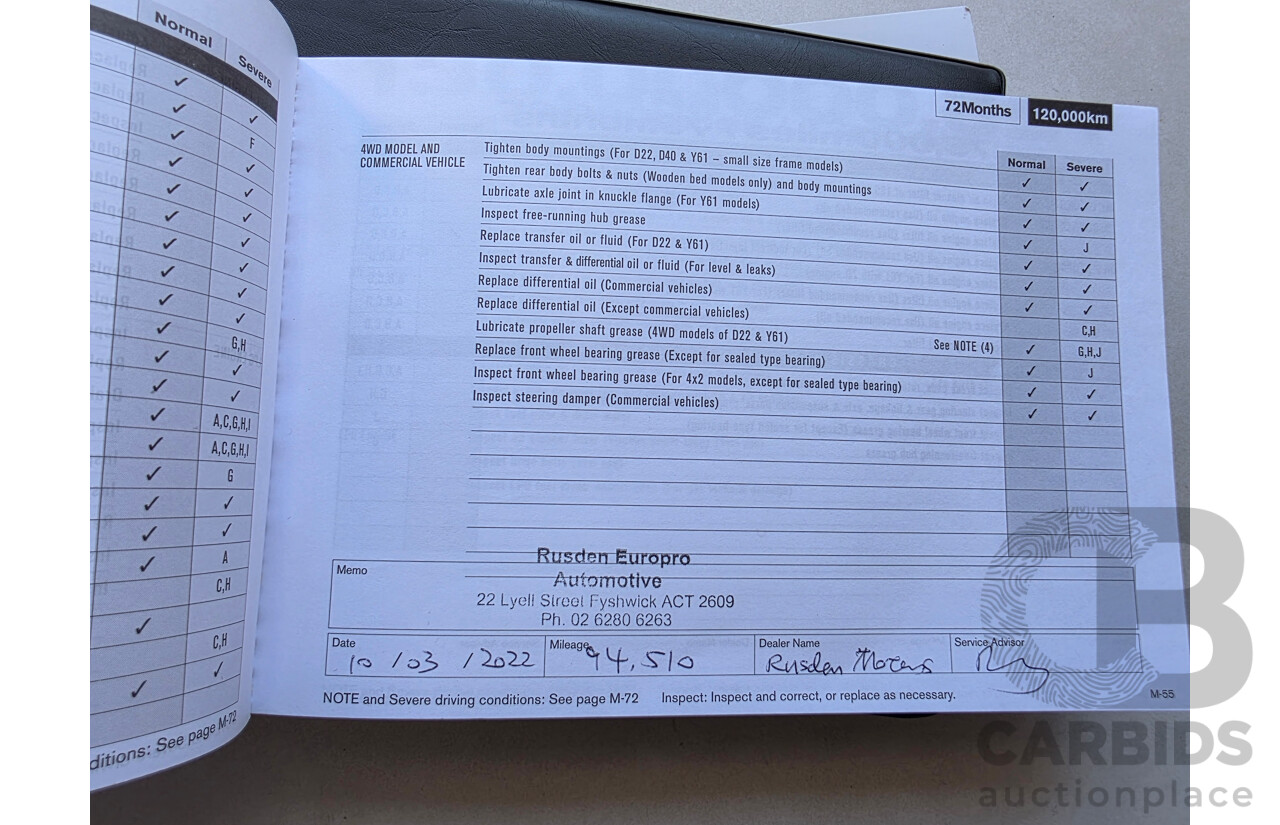 Normal
Severe
✓
✓ ✓
✓ F
✓ ✓
✓ ✓
✓ ✓
✓ ✓
✓ ✓
✓ ✓
✓ ✓
✓ G,H
✓ ✓
✓ ✓
✓ A,C,G,H,I
✓ A,C,G,H,I
✓ G
✓ ✓
✓ ✓
✓ A
C,H
✓
C,H
✓ ✓
ditions: See page M-72
72Months 120,000km
Normal Severe
4WD MODEL AND
COMMERCIAL VEHICLE
Tighten body mountings (For D22, D40 & Y61 – small size frame models) ✓ ✓
Tighten rear body bolts & nuts (Wooden bed models only) and body mountings ✓ ✓
Lubricate axle joint in knuckle flange (For Y61 models) ✓ ✓
Inspect free-running hub grease ✓ J
Replace transfer oil or fluid (For D22 & Y61) ✓ ✓
Inspect transfer & differential oil or fluid (For level & leaks) ✓ ✓
Replace differential oil (Commercial vehicles) ✓ ✓
Replace differential oil (Except commercial vehicles) C,H
Lubricate propeller shaft grease (4WD models of D22 & Y61) See NOTE (4) ✓ G,H,J
Replace front wheel bearing grease (Except for sealed type bearing) ✓ J
Inspect front wheel bearing grease (For 4x2 models, except for sealed type bearing) ✓ ✓
Inspect steering damper (Commercial vehicles) ✓ ✓
Memo
Rusden Europro
Automotive
22 Lyell Street Fyshwick ACT 2609
Ph. 02 6280 6263
Date Mileage Dealer Name Service Advisor
10 / 03 / 2022 94,510 Rusden Motors
NOTE and Severe driving conditions: See page M-72 Inspect: Inspect and correct, or replace as necessary.
M-55
CB
CARBIDS
auctionplace